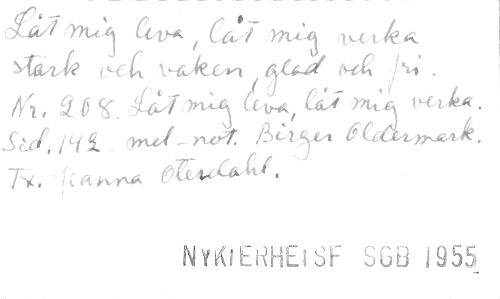 Låt mig leva, låt mig verka
stark och vaken, glad och fri.
Nr. 208. Låt mig leva, låt mig verka.
Sid. 142 mel-not. Birger Oldermark.
Tx. Jeanna Oterdahl.
NYKIERHEISF SGB 1955